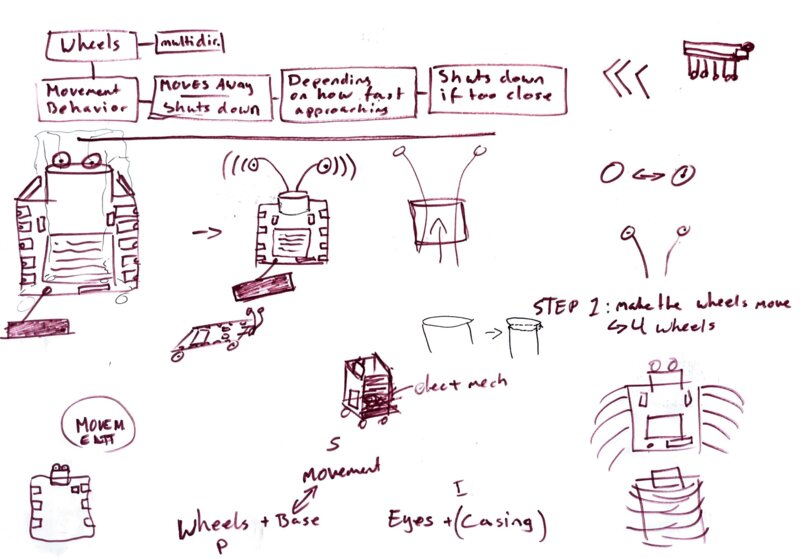 Wheels
multidir.
Movement
Behavior
MOVES AWAY
Shuts down
Depending
on how fast
approaching
Shuts down
if too close
STEP 1: make the wheels move
↳ 4 wheels
elect mech
MOVEM
ENT
S
Movement
Wheels + Base
P
I
Eyes + (Casing)